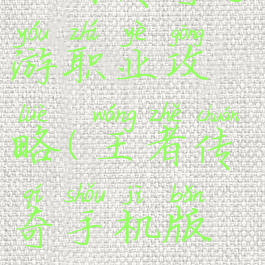 yóu zhí yè gōng
游职业攻
lüè wáng zhě chuán
略(王者传
qí shǒu jī bǎn
奇手机版